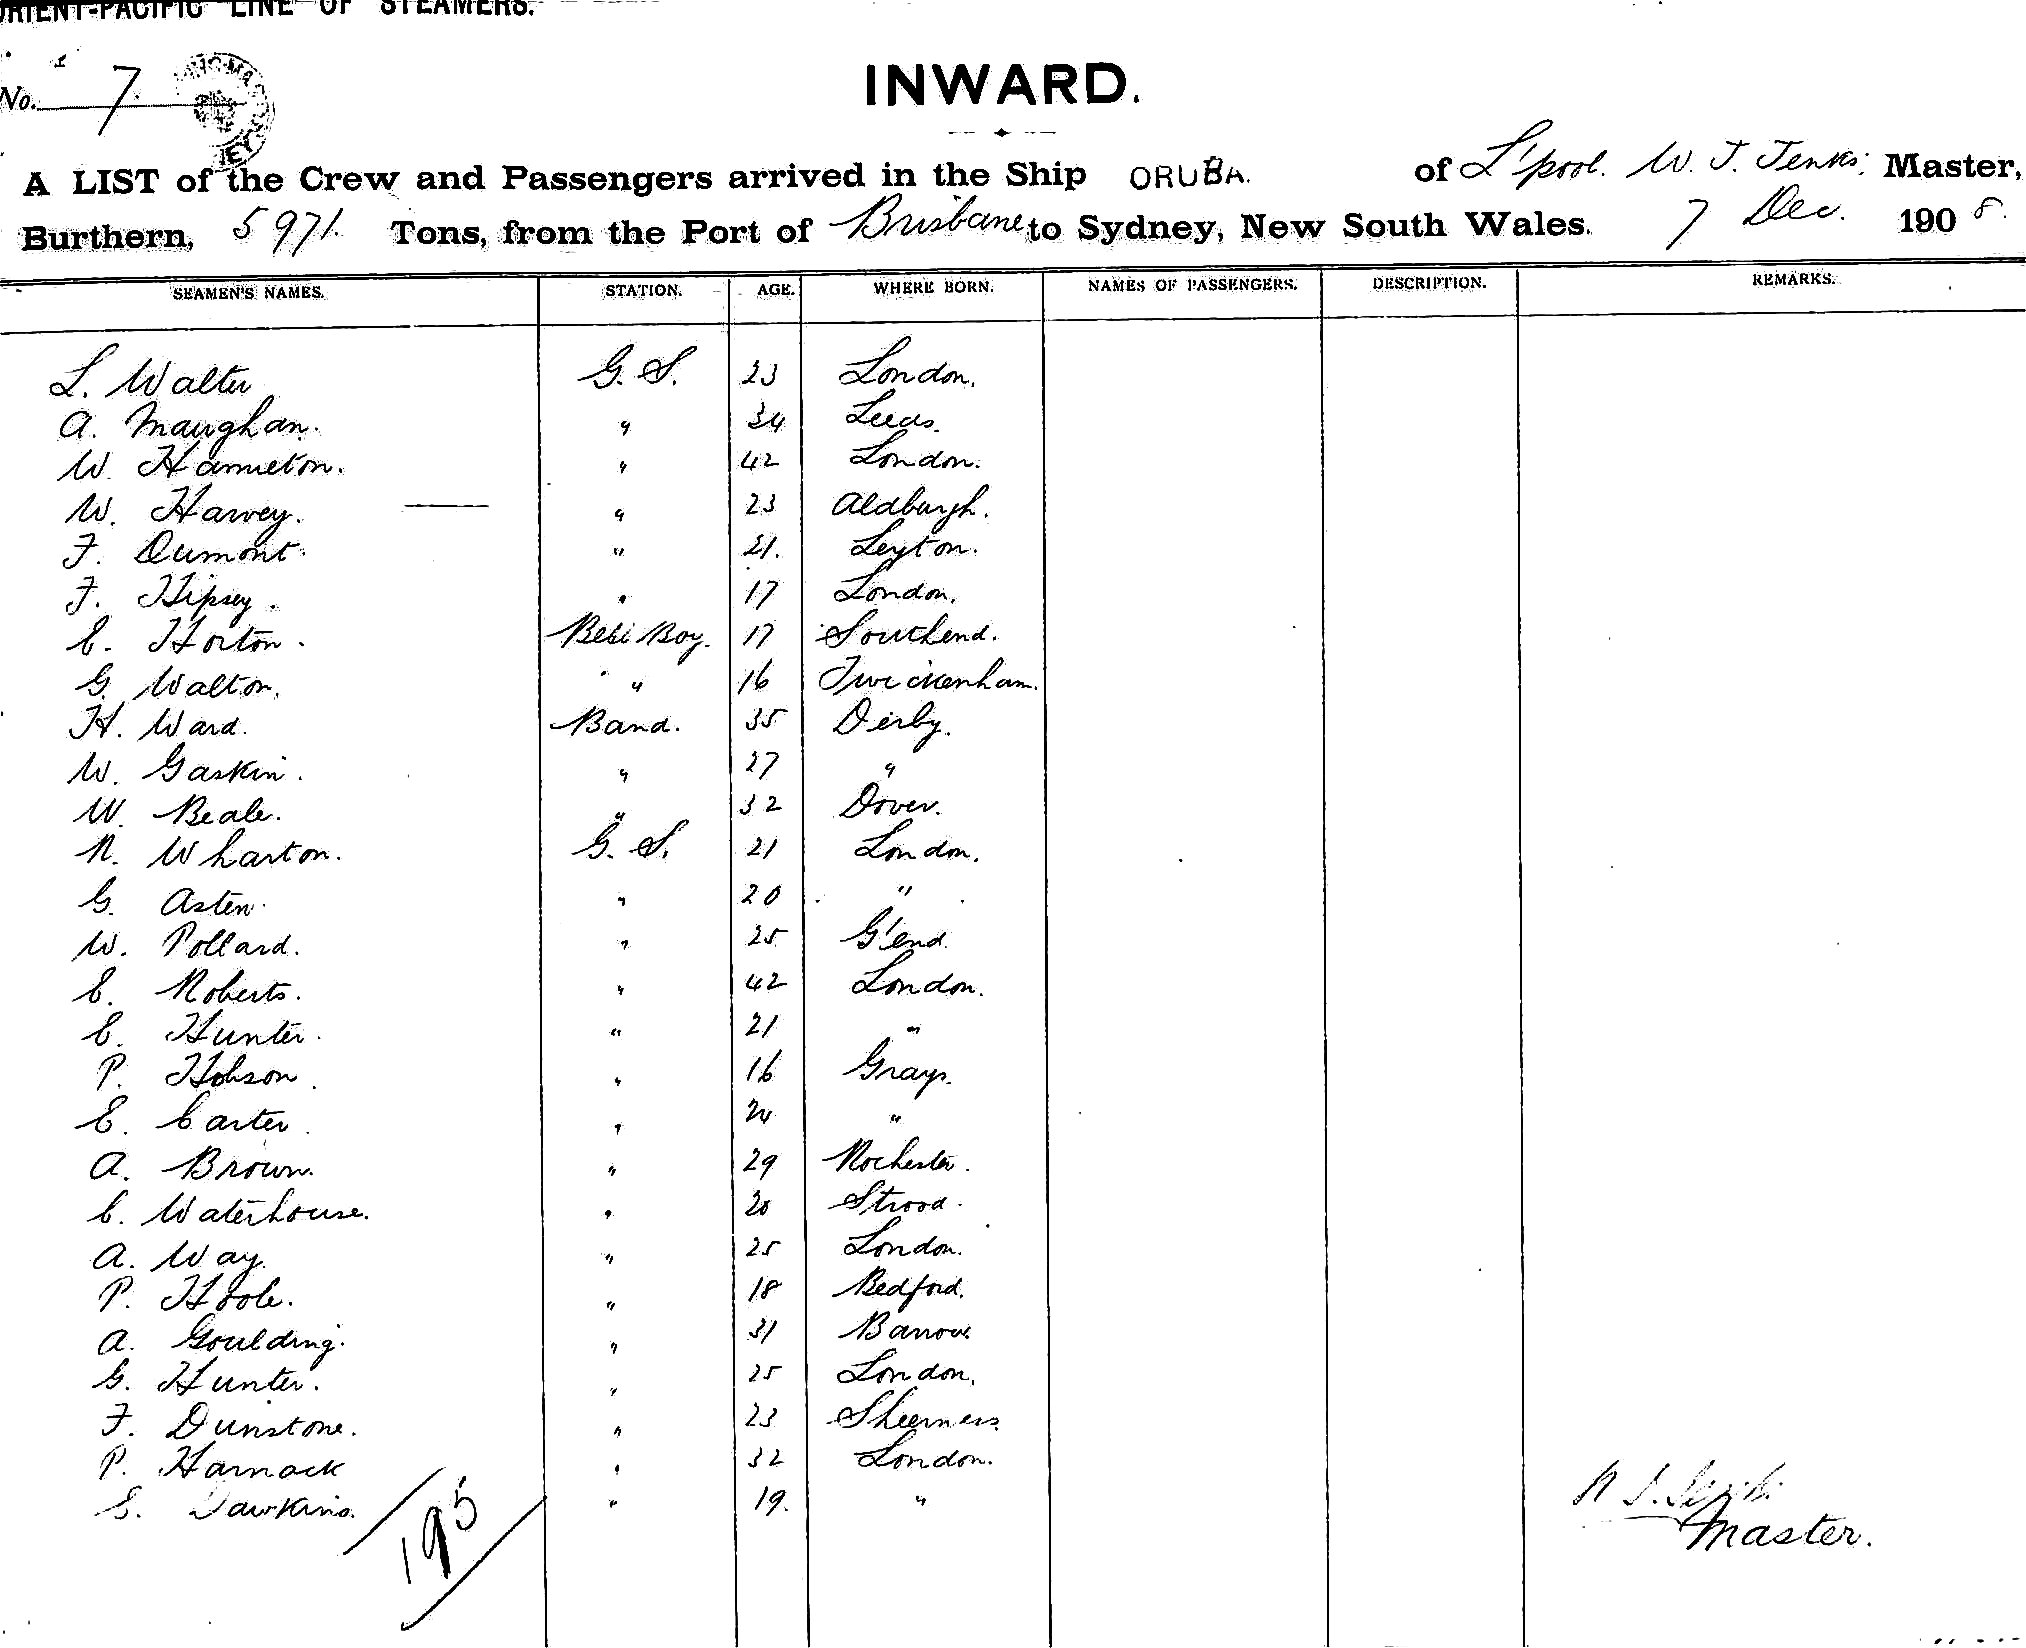 ORIENT-PACIFIC LINE OF STEAMERS.
No. 7.
INWARD.
A LIST of the Crew and Passengers arrived in the Ship ORUBA. of L'pool. W. J. Jenks; Master,
Burthern, 5971. Tons, from the Port of Brisbane to Sydney, New South Wales. 7 Dec. 1908.
SEAMEN'S NAMES. STATION. AGE. WHERE BORN. NAMES OF PASSENGERS. DESCRIPTION. REMARKS.
L. Walter G. S. 23 London.
A. Maughan. " 34 Leeds.
W. Hamilton. " 42 London.
W. Harvey. " 23 Aldburgh.
F. Dumont. " 21. Leyton.
F. Hipsey. " 17 London.
C. Horton. Bell Boy. 17 Southend.
G. Walton. " 16 Twickenham.
H. Ward. Band. 35 Derby.
W. Gaskin. " 27 "
W. Beale. " 32 Dover.
R. Wharton. G. S. 21 London.
G. Asten. " 20 "
W. Pollard. " 25 G'end.
C. Roberts. " 42 London.
C. Hunter. " 21 "
P. Hobson. " 16 Grays.
E. Carter. " 24 "
A. Brown. " 29 Rochester.
C. Waterhouse. " 20 Strood.
A. Way. " 25 London.
P. Hoole. " 18 Bedford.
A. Goulding. " 31 Barrow.
G. Hunter. " 25 London.
F. Dunstone. " 23 Sheerness.
P. Harnack " 32 London.
S. Dawkins. " 19. "
195
Master.